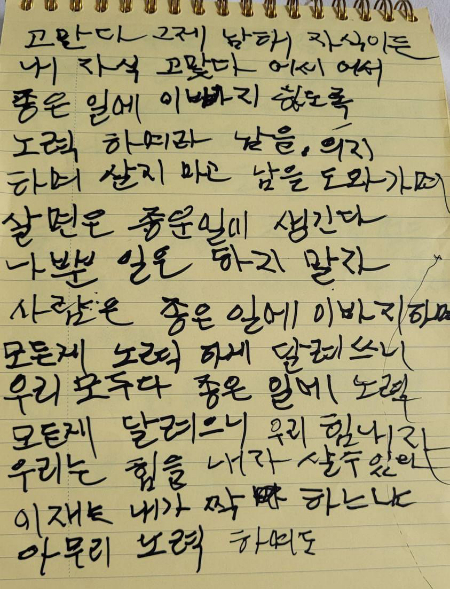 고만다 그제 남태 자식이든
내 자식 고맞다 어서 어서
좋은 일에 이바지 하도록
노력 하여라 남을, 의지
하며 살지 마고 남을 도와가며
살면은 좋은일이 생긴다
나쁜 일은 하지 말자
사람은 좋은 일에 이바지하며
모든제 노력 하게 달려쓰니
우리 모두다 좋은 일에 노력
모든제 달려으니 우리 힘내자
우리는 힘을 내자 살수있다
이재는 내가 짝 하는
아무리 노력 하여도